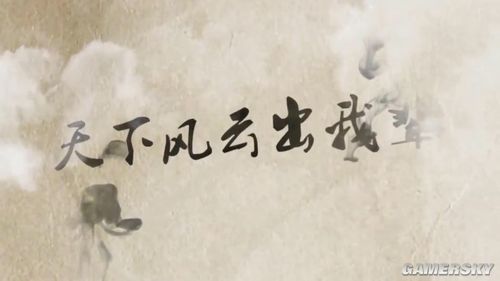 天下风云出我辈
GAMERSKY